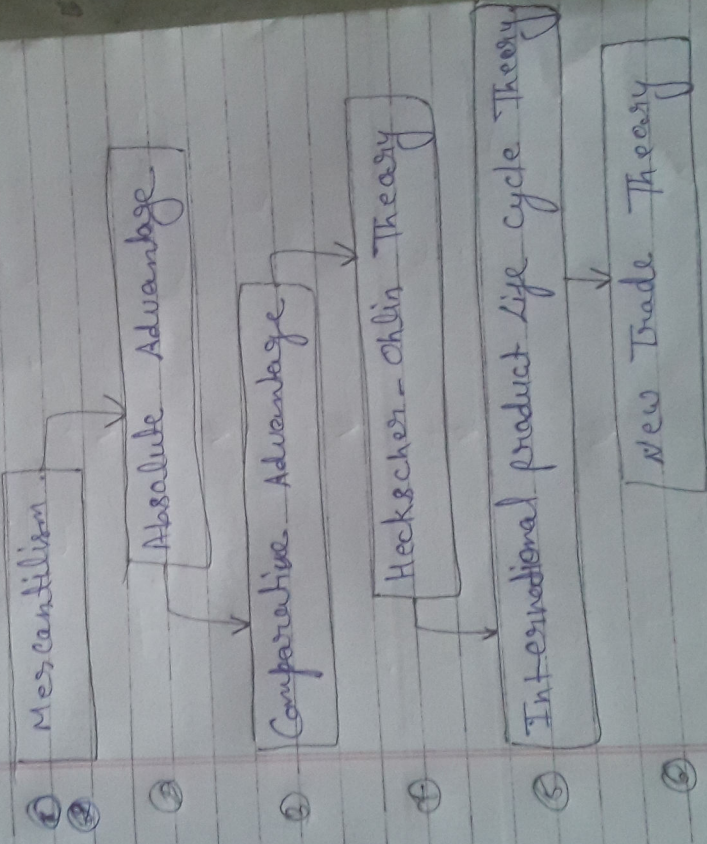 Mercantilism
Absolute Advantage
Comparative Advantage
④ Heckscher-Ohlin Theory
⑤ International product Life cycle Theory
⑥ New Trade Theory